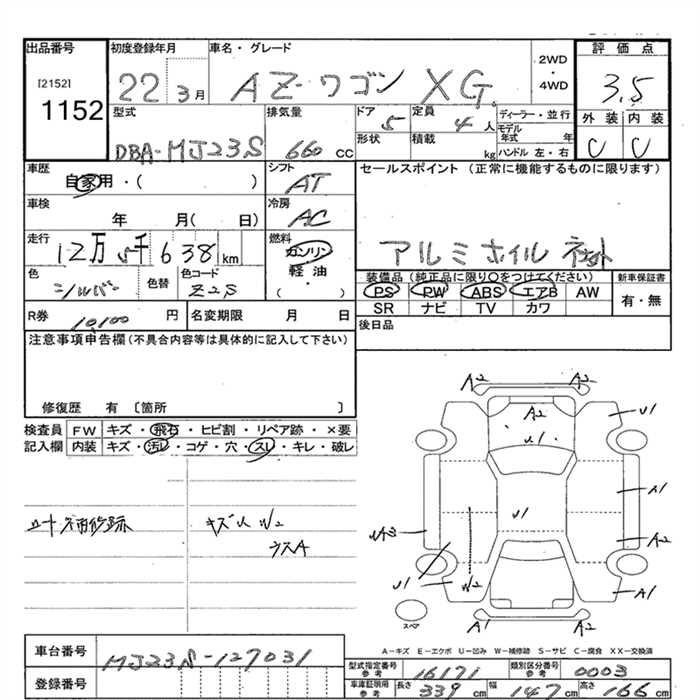 出品番号
[2152]
1152
初度登録年月
22 3月
車名・グレード
AZ-ワゴン XG
2WD
・
4WD
評価点
3.5
外装 内装
C C
型式
DBA-MJ23S
排気量
660 CC
ドア
5
形状
定員
4人
積載
kg
ディーラー・並行
モデル年式 年
ハンドル 左・右
車歴
自家用・( )
シフト
AT
セールスポイント (正常に機能するものに限ります)
アルミホイル
車検
年 月( 日)
冷房
AC
走行
12万5千638km
燃料
ガソリン
軽油
・
( )
色
シルバー
色替
色コード
Z2S
装備品 (純正品に限り○をつけてください)
PS PW ABS エアB AW
SR ナビ TV カワ
新車保証書
有・無
R券
10,100 円
名変期限 月 日
後日品
注意事項申告欄(不具合内容等は具体的に記入して下さい)
修復歴 有 〔箇所 〕
検査員記入欄
FW キズ・飛石・ヒビ割・リペア跡・×要
内装 キズ・汚レ・コゲ・穴・スレ・キレ・破レ
補修跡
キズ U W2
ウスA
A2 A2
A2
U1
U1
U1
A1
A2
A1
U1
W2
A1 A2
スペア
A-キズ E-エクボ U-凹み W-補修跡 S-サビ C-腐食 XX-交換済
車台番号
MJ23S-127031
登録番号
型式指定番号
参考
16171
類別区分番号
参考
0003
車庫証明用
参考
長さ 339 cm
幅 147 cm
高さ 166 cm